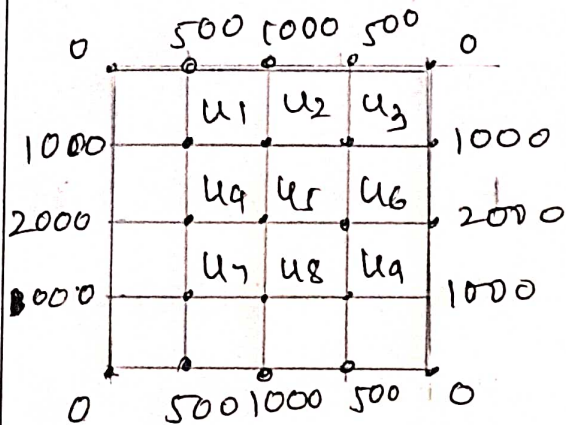 0 500 1000 500 0
u1 u2 u3
1000 1000
u4 u5 u6
2000 2000
u7 u8 u9
1000 1000
0 500 1000 500 0